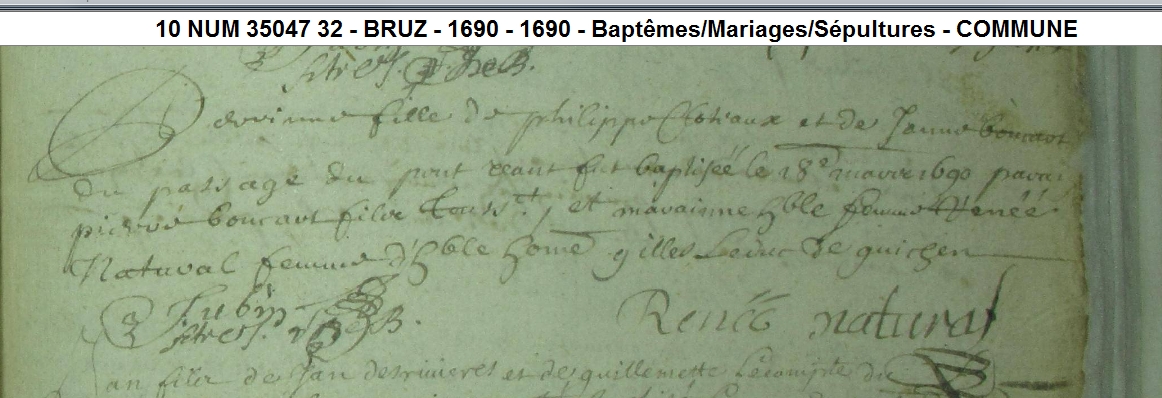 10 NUM 35047 32 - BRUZ - 1690 - 1690 - Baptêmes/Mariages/Sépultures - COMMUNE
Perrinne fille de philippe et de Janne boucart
du passage du pont reant fut baptiseé le 18e mars 1690 parai
pierre boucart et marainne hble femme Renéé
Natural femme d'hble home gilles Leduc de guichen
Renéé natural
an fils de Jan desrivieres et de guillemette Lecompte du